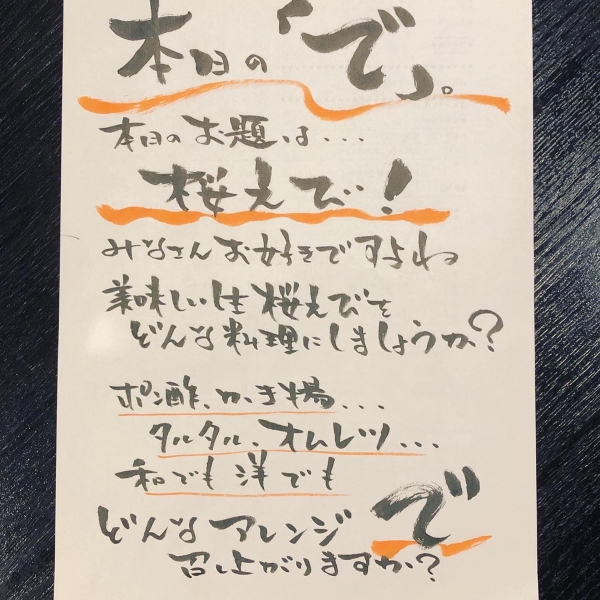 本日の「で」。
本日のお題は...
桜えび!
みなさんお好きですよね
美味しい生桜えびを
どんな料理にしましょうか?
ポン酢、かき揚...
タルタル、オムレツ...
和でも洋でも
どんなアレンジで
召し上がりますか?